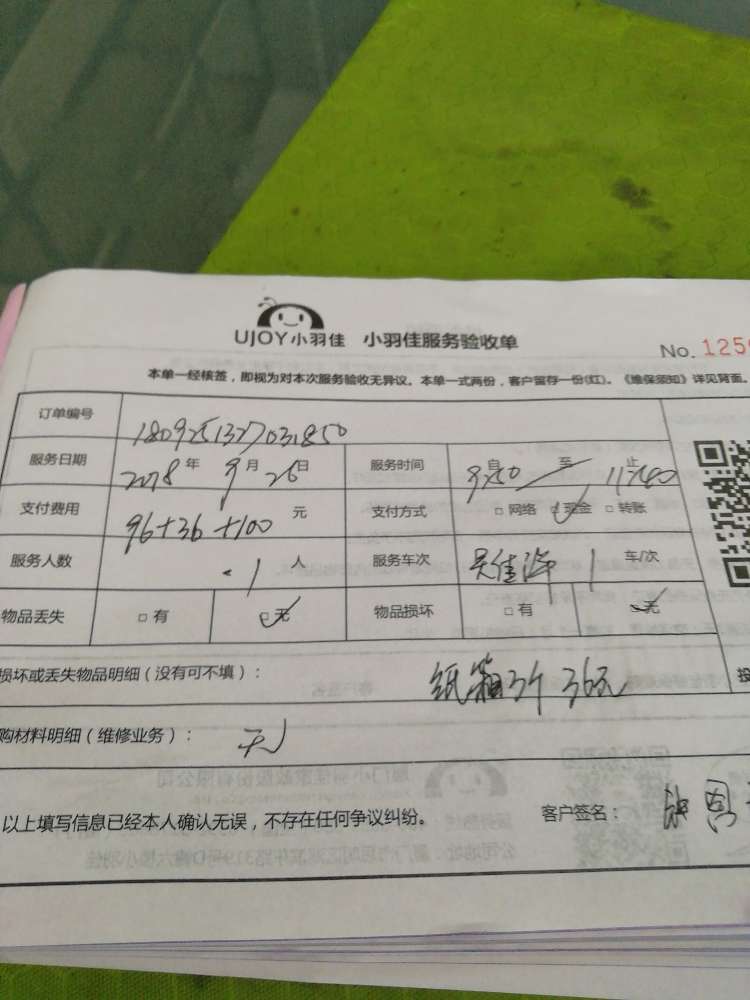 UJOY小羽佳 小羽佳服务验收单
No. 125
本单一经核签，即视为对本次服务验收无异议。本单一式两份，客户留存一份(红)。《维保须知》详见背面。
订单编号 1809251327031850
服务日期 2018年 9月 26日 服务时间 自 9:50 至 11:40 止
支付费用 96+36+100 元 支付方式 □网络 ☑现金 □转账
服务人数 1 人 服务车次 1 车/次
物品丢失 □有 ☑无 物品损坏 □有 ☑无
损坏或丢失物品明细（没有可不填）： 纸箱3个 36元
购材料明细（维修业务）： 无
以上填写信息已经本人确认无误，不存在任何争议纠纷。 客户签名：